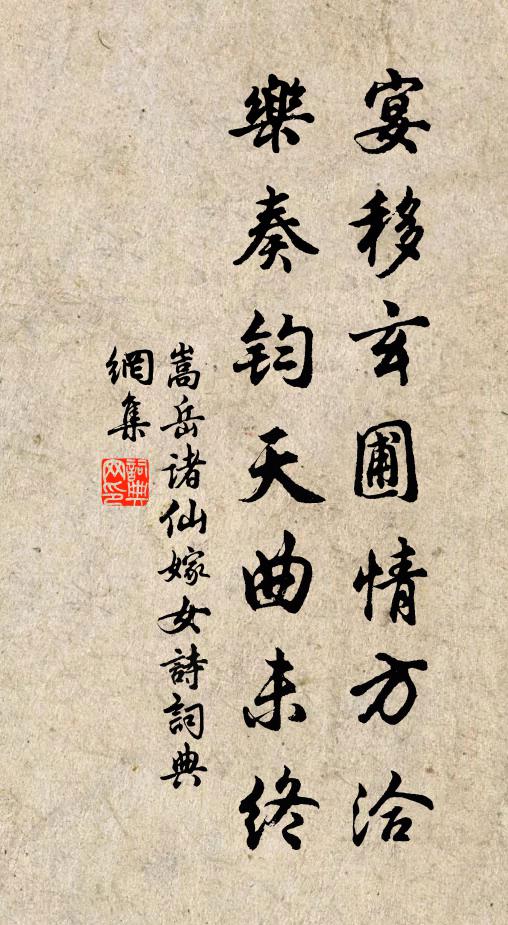 宴移玄圃情方洽
樂奏鈞天曲未終
嵩岳諸仙嫁女詩詞典
網集
詞典網印